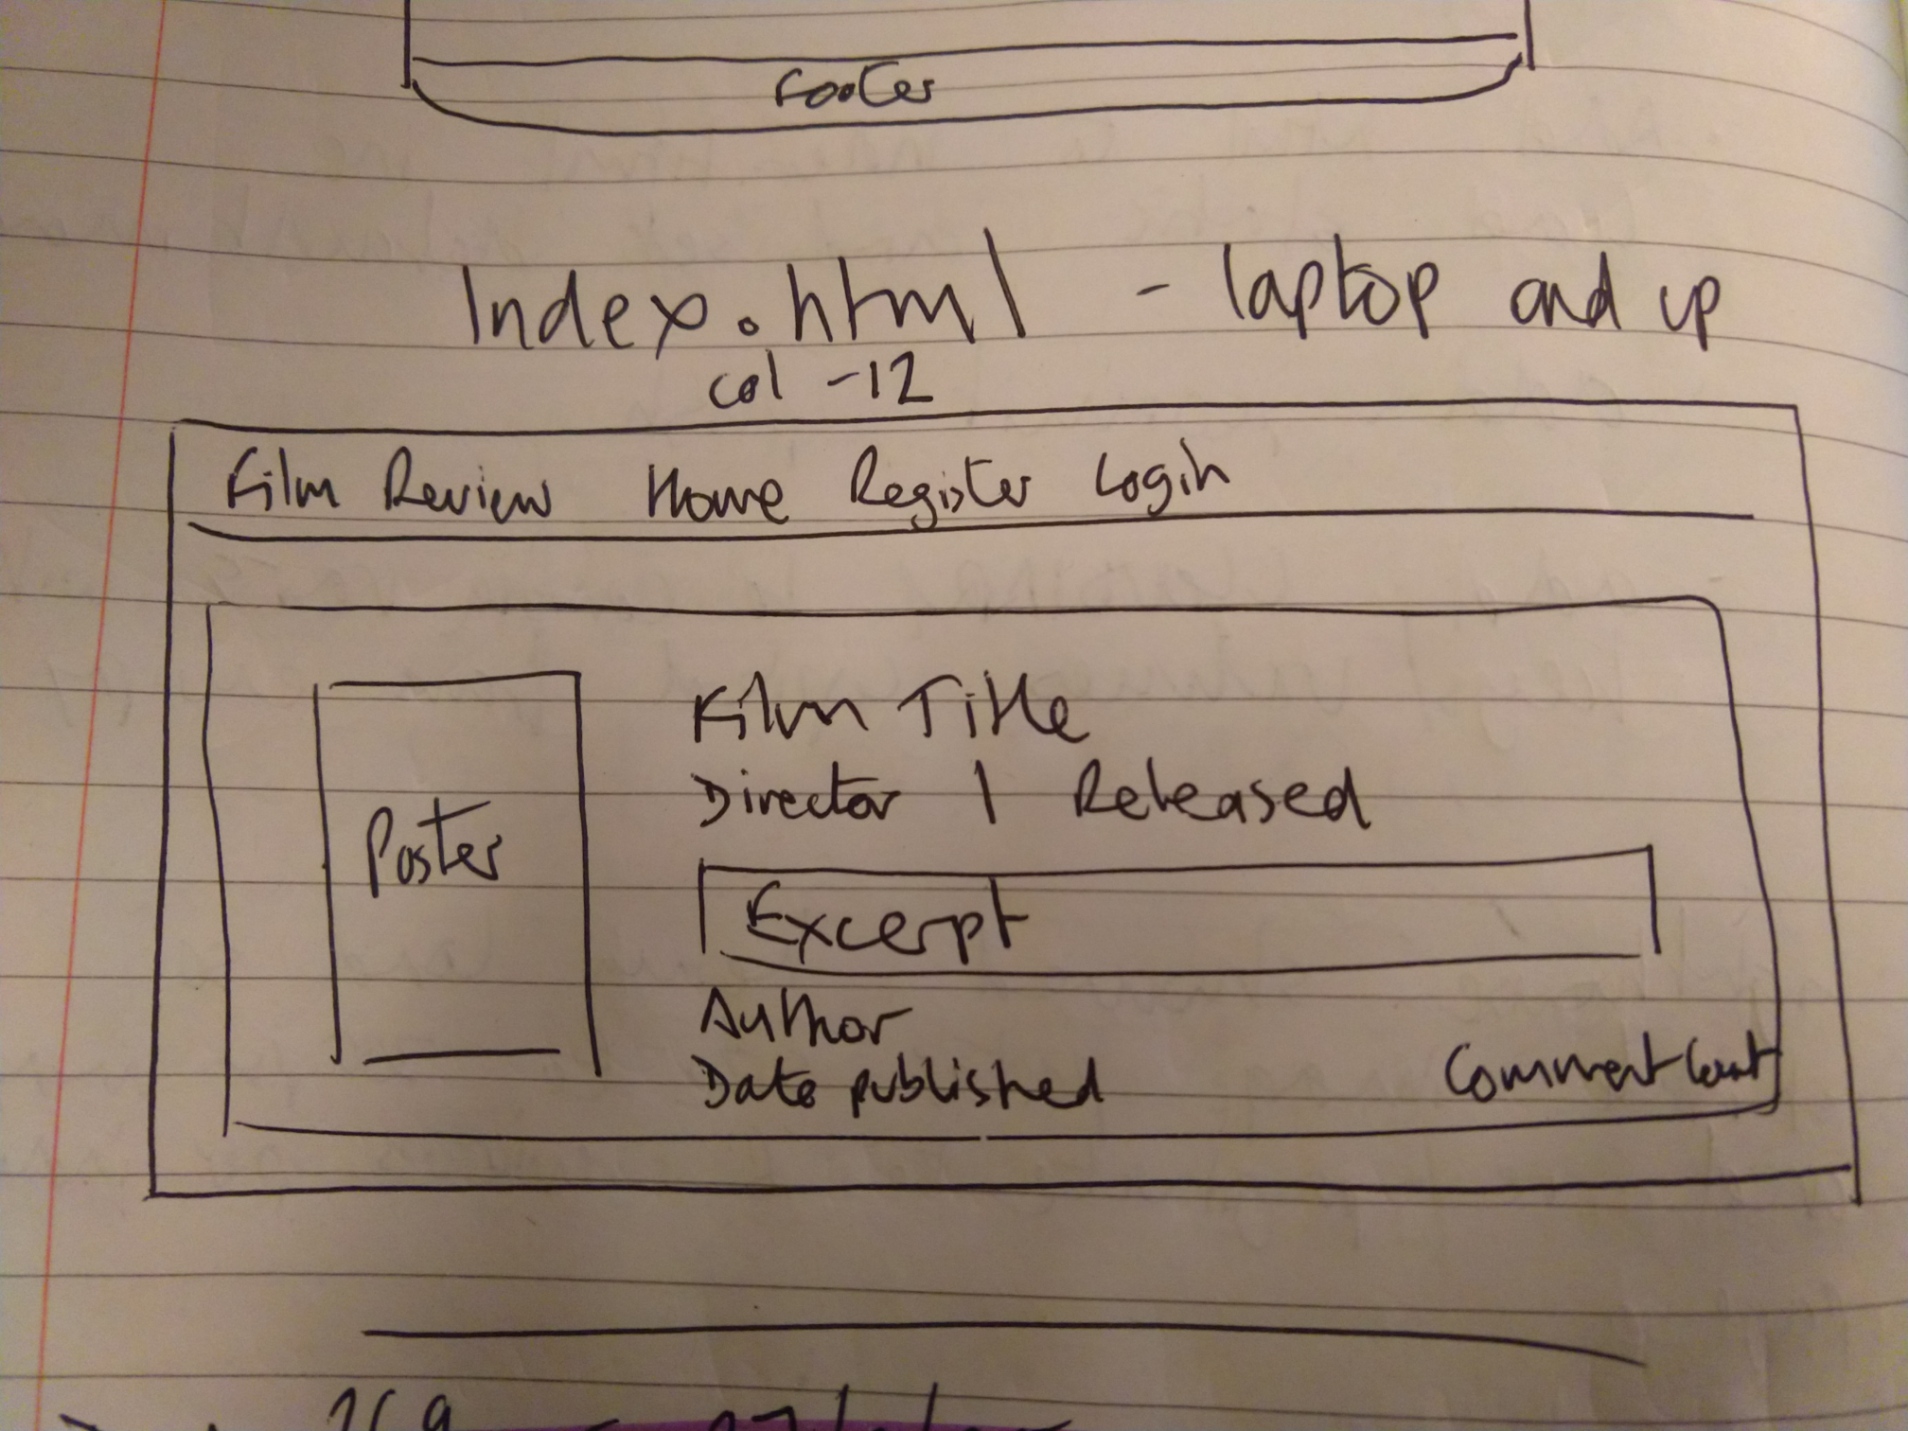 Footer
Index.html - laptop and up
col -12
Film Review Home Register Login
Film Title
Director | Released
Poster
Excerpt
Author
Date published
Comment Count